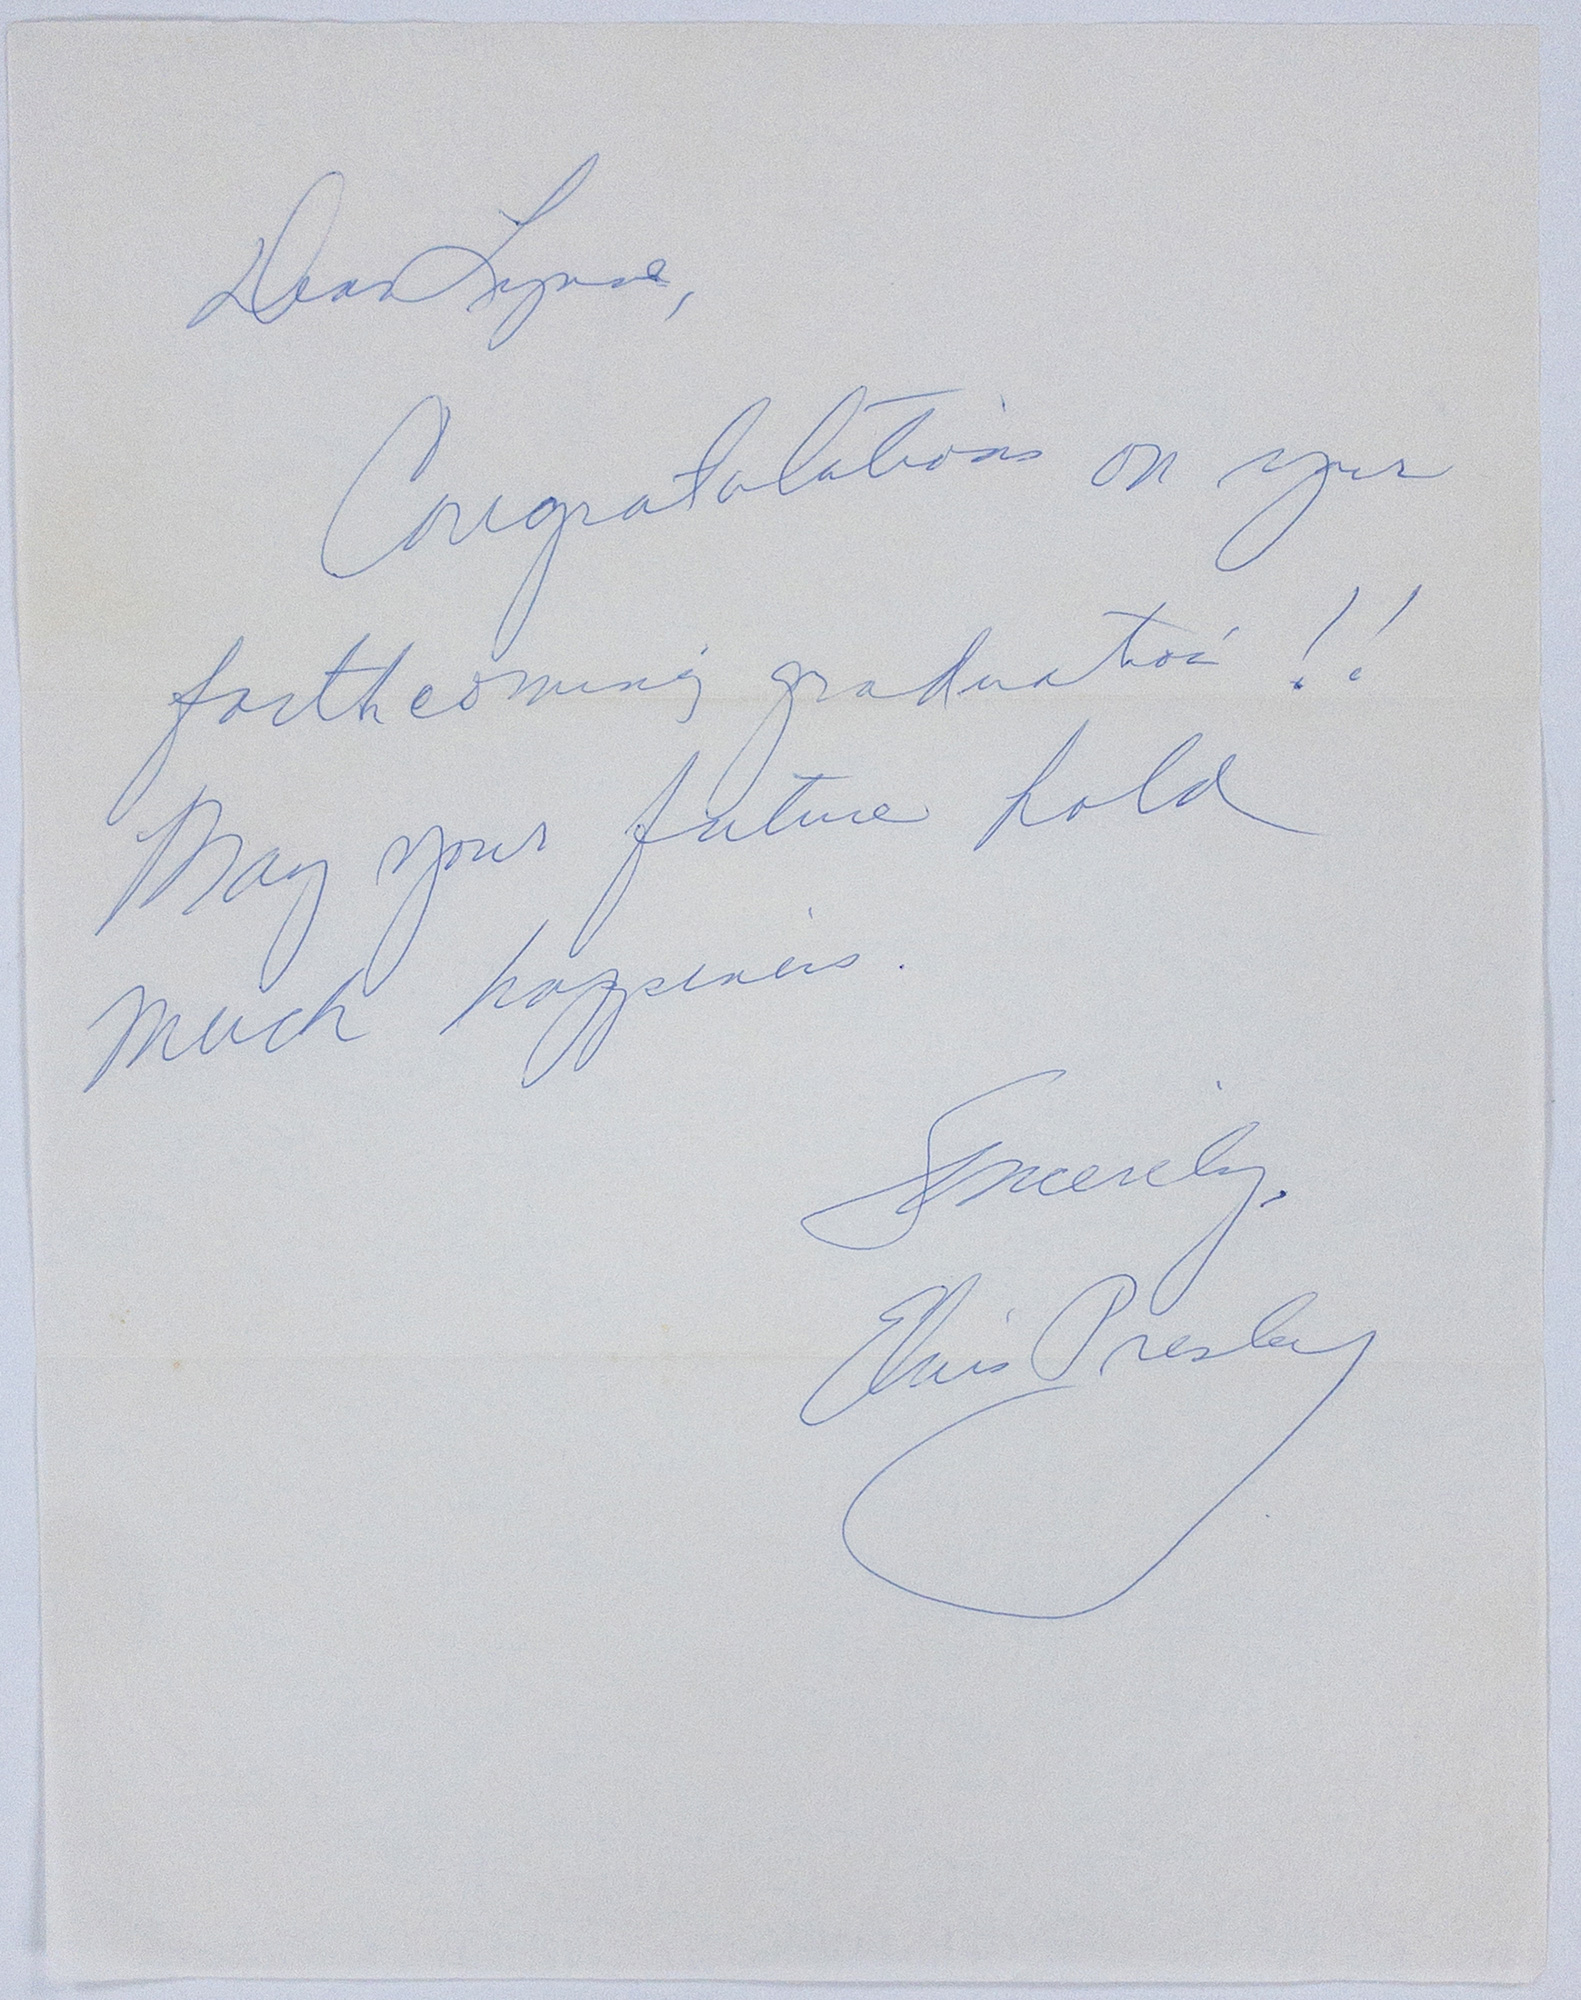 Dear Lynne,
Congratulations on your
forthcoming graduation!!
May your future hold
much happiness.
Sincerely,
Elvis Presley